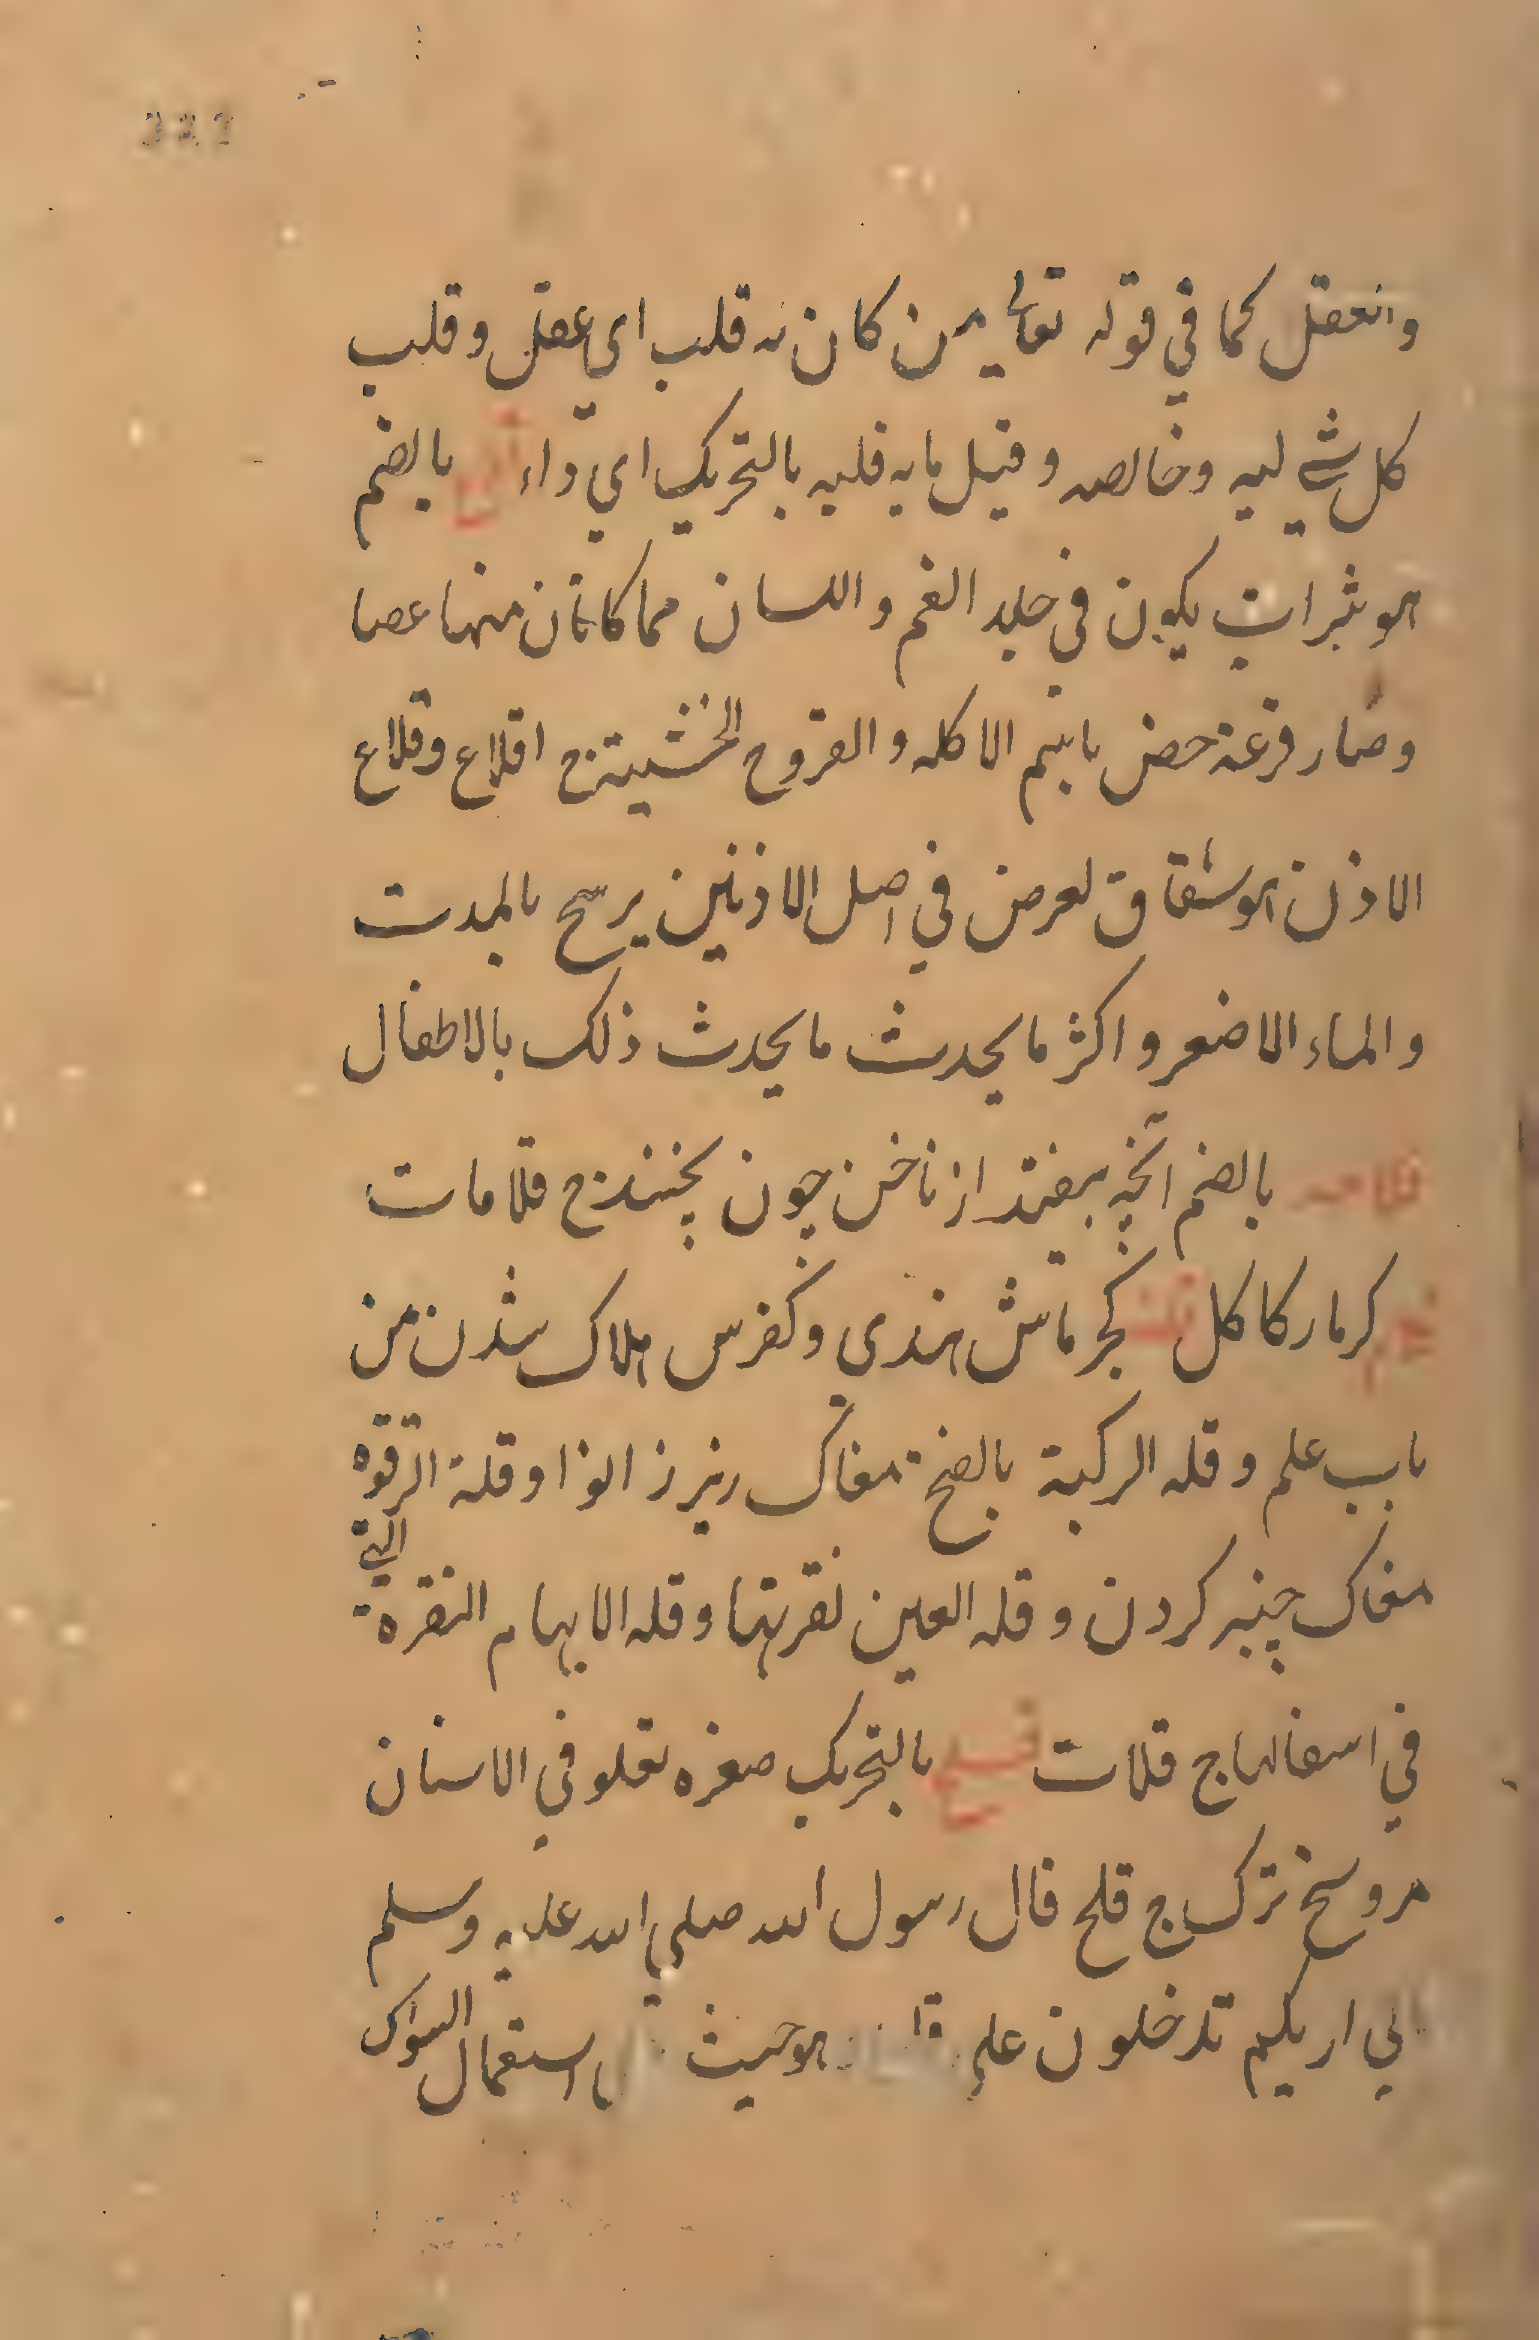 322
والعقل كما في قوله تعالي من كان له قلب اي عقل وقلب
كل شي لبه وخالصه وقيل ما به قلبه بالتحريك اي داء قلاع بالضم
هو بثرات يكون في جلد الفم واللسان مما كان منها
وصار قرعة خص باسم الاكله والقروح الخشيته ج اقلاع وقلاع
الاذن هو شقاق لعرض في اصل الاذنين يرسح بالمدت
والماء الاصفر واكثر ما يحدث ما يحدث ذلك بالاطفال
قلامه بالضم انچه بيفتد از ناخن چون بچنند ج قلامات
كرمار كاكل قلت كجر ماش هندي وكفرس هلاك شدن من
باب علم وقله الركبة بالضخة مغاك زيرزانو او قلة الترقوه
مغاك چنبر كردن وقله العين نقرتها وقله الابهام النقره التي
في اسفالها ج قلات قلح بالتحريك صفره تعلو في الاسنان
مر وسخ ترك ج قلح قال رسول الله صلي الله عليه وسلم
اني اريكم تدخلون علي هو حيث استعمال السواك